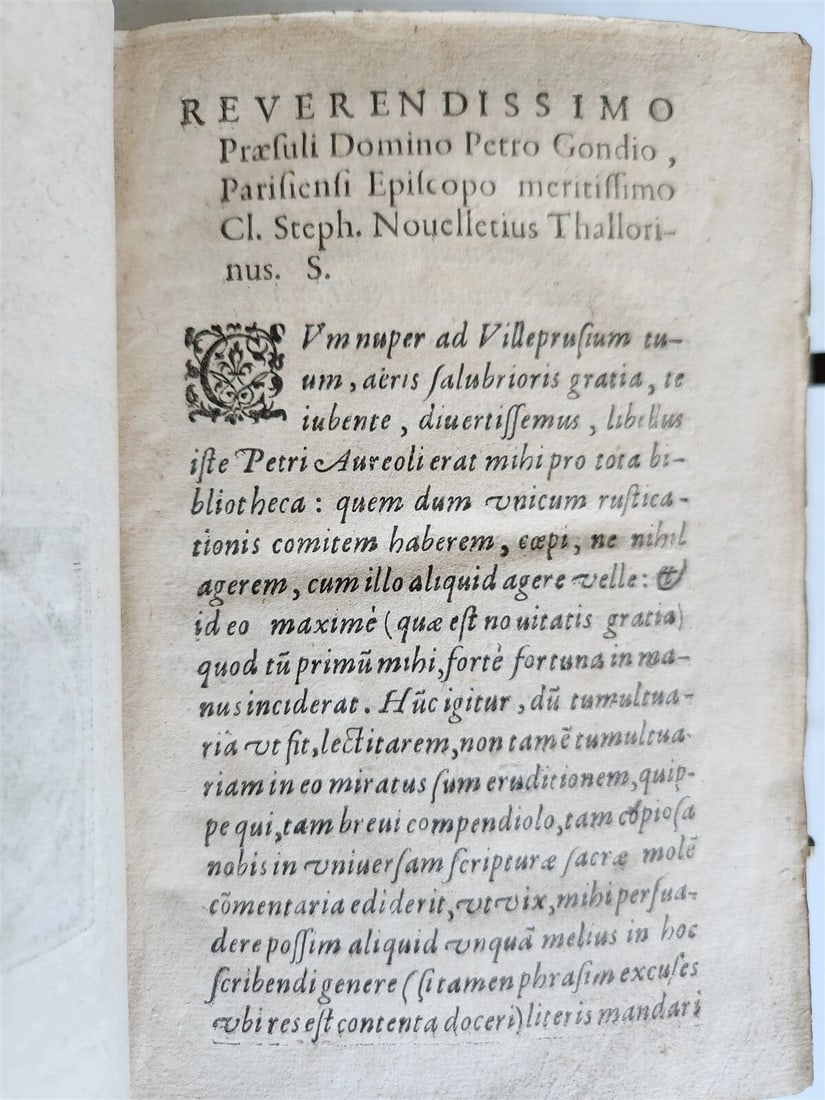 REVERENDISSIMO
Præſuli Domino Petro Gondio,
Pariſienſi Epiſcopo meritiſſimo
Cl. Steph. Nouelletius Thallori-
nus. S.
CVm nuper ad Villepruſium tu-
um, aëris ſalubrioris gratia, te
iubente, diuertiſſemus, libellus
iſte Petri Aureoli erat mihi pro tota bi-
bliotheca: quem dum vnicum ruſtica-
tionis comitem haberem, cœpi, ne nihil
agerem, cum illo aliquid agere velle: &
id eo maximè (quæ eſt nouitatis gratia)
quod tũ primũ mihi, fortè fortuna in ma-
nus inciderat. Hũc igitur, dũ tumultua-
ria vt fit, lectitarem, non tamẽ tumultua-
riam in eo miratus ſum eruditionem, quip-
pe qui, tam breui compendiolo, tam copioſa
nobis in vniuerſam ſcripturæ ſacræ molẽ
cõmentaria ediderit, vt vix, mihi perſua-
dere poſſim aliquid vnquã melius in hoc
ſcribendi genere (ſi tamen phraſim excuſes
vbi res eſt contenta doceri) literis mandari